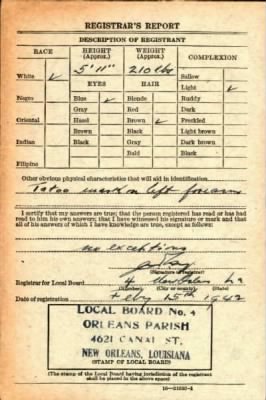 REGISTRAR'S REPORT
DESCRIPTION OF REGISTRANT
RACE HEIGHT (Approx.) WEIGHT (Approx.) COMPLEXION
5' 11" 210 lbs
White ✓ EYES HAIR Sallow
Light ✓
Negro Blue ✓ Blonde Ruddy
Gray Red Dark
Oriental Hazel Brown ✓ Freckled
Brown Black Light brown
Indian Black Gray Dark brown
Bald Black
Filipino
Other obvious physical characteristics that will aid in identification
Tatoo mark on left forearm
I certify that my answers are true; that the person registered has read or has had
read to him his own answers; that I have witnessed his signature or mark and that
all of his answers of which I have knowledge are true, except as follows:
no exceptions
(Signature of registrar)
Registrar for Local Board 4 La
(Number) (City or county) (State)
Date of registration Feby 15th 1942
LOCAL BOARD No. 4
ORLEANS PARISH
4621 CANAL ST.
NEW ORLEANS, LOUISIANA
(STAMP OF LOCAL BOARD)
(The stamp of the Local Board having jurisdiction of the registrant
shall be placed in the above space)